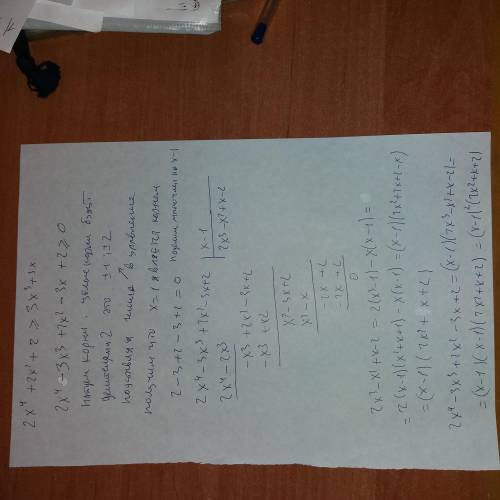 2x⁴ + 2x² + 2 ≥ 3x³ + 3x
2x⁴ - 3x³ + 2x² - 3x + 2 ≥ 0
Найдём корни. Целые корни
делители 2 это ±1; ±2
числа в уравнение
получим что x=1 является корнем
2-3+2-3+2=0 поделим многочлен на x-1
2x⁴-3x³+2x²-3x+2 | x-1
2x⁴-2x³ 2x³-x²+x-2
-x³+2x²-3x+2
-x³+x²
x²-3x+2
x²-x
-2x+2
-2x+2
0
2x³-x²+x-2 = 2(x³-1)-x(x-1)=
=2(x-1)(x²+x+1)-x(x-1)=(x-1)(2x²+2x+2-x)
=(x-1)(2x²+x+2)
2x⁴-3x³+2x²-3x+2=(x-1)(2x³-x²+x-2)=
=(x-1)(x-1)(2x²+x+2)=(x-1)²(2x²+x+2)